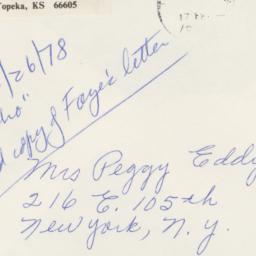 Topeka, KS 66605
/26/78
copy of Faye's letter
Mrs Peggy Eddy
216 E. 105th
New York, N. Y.